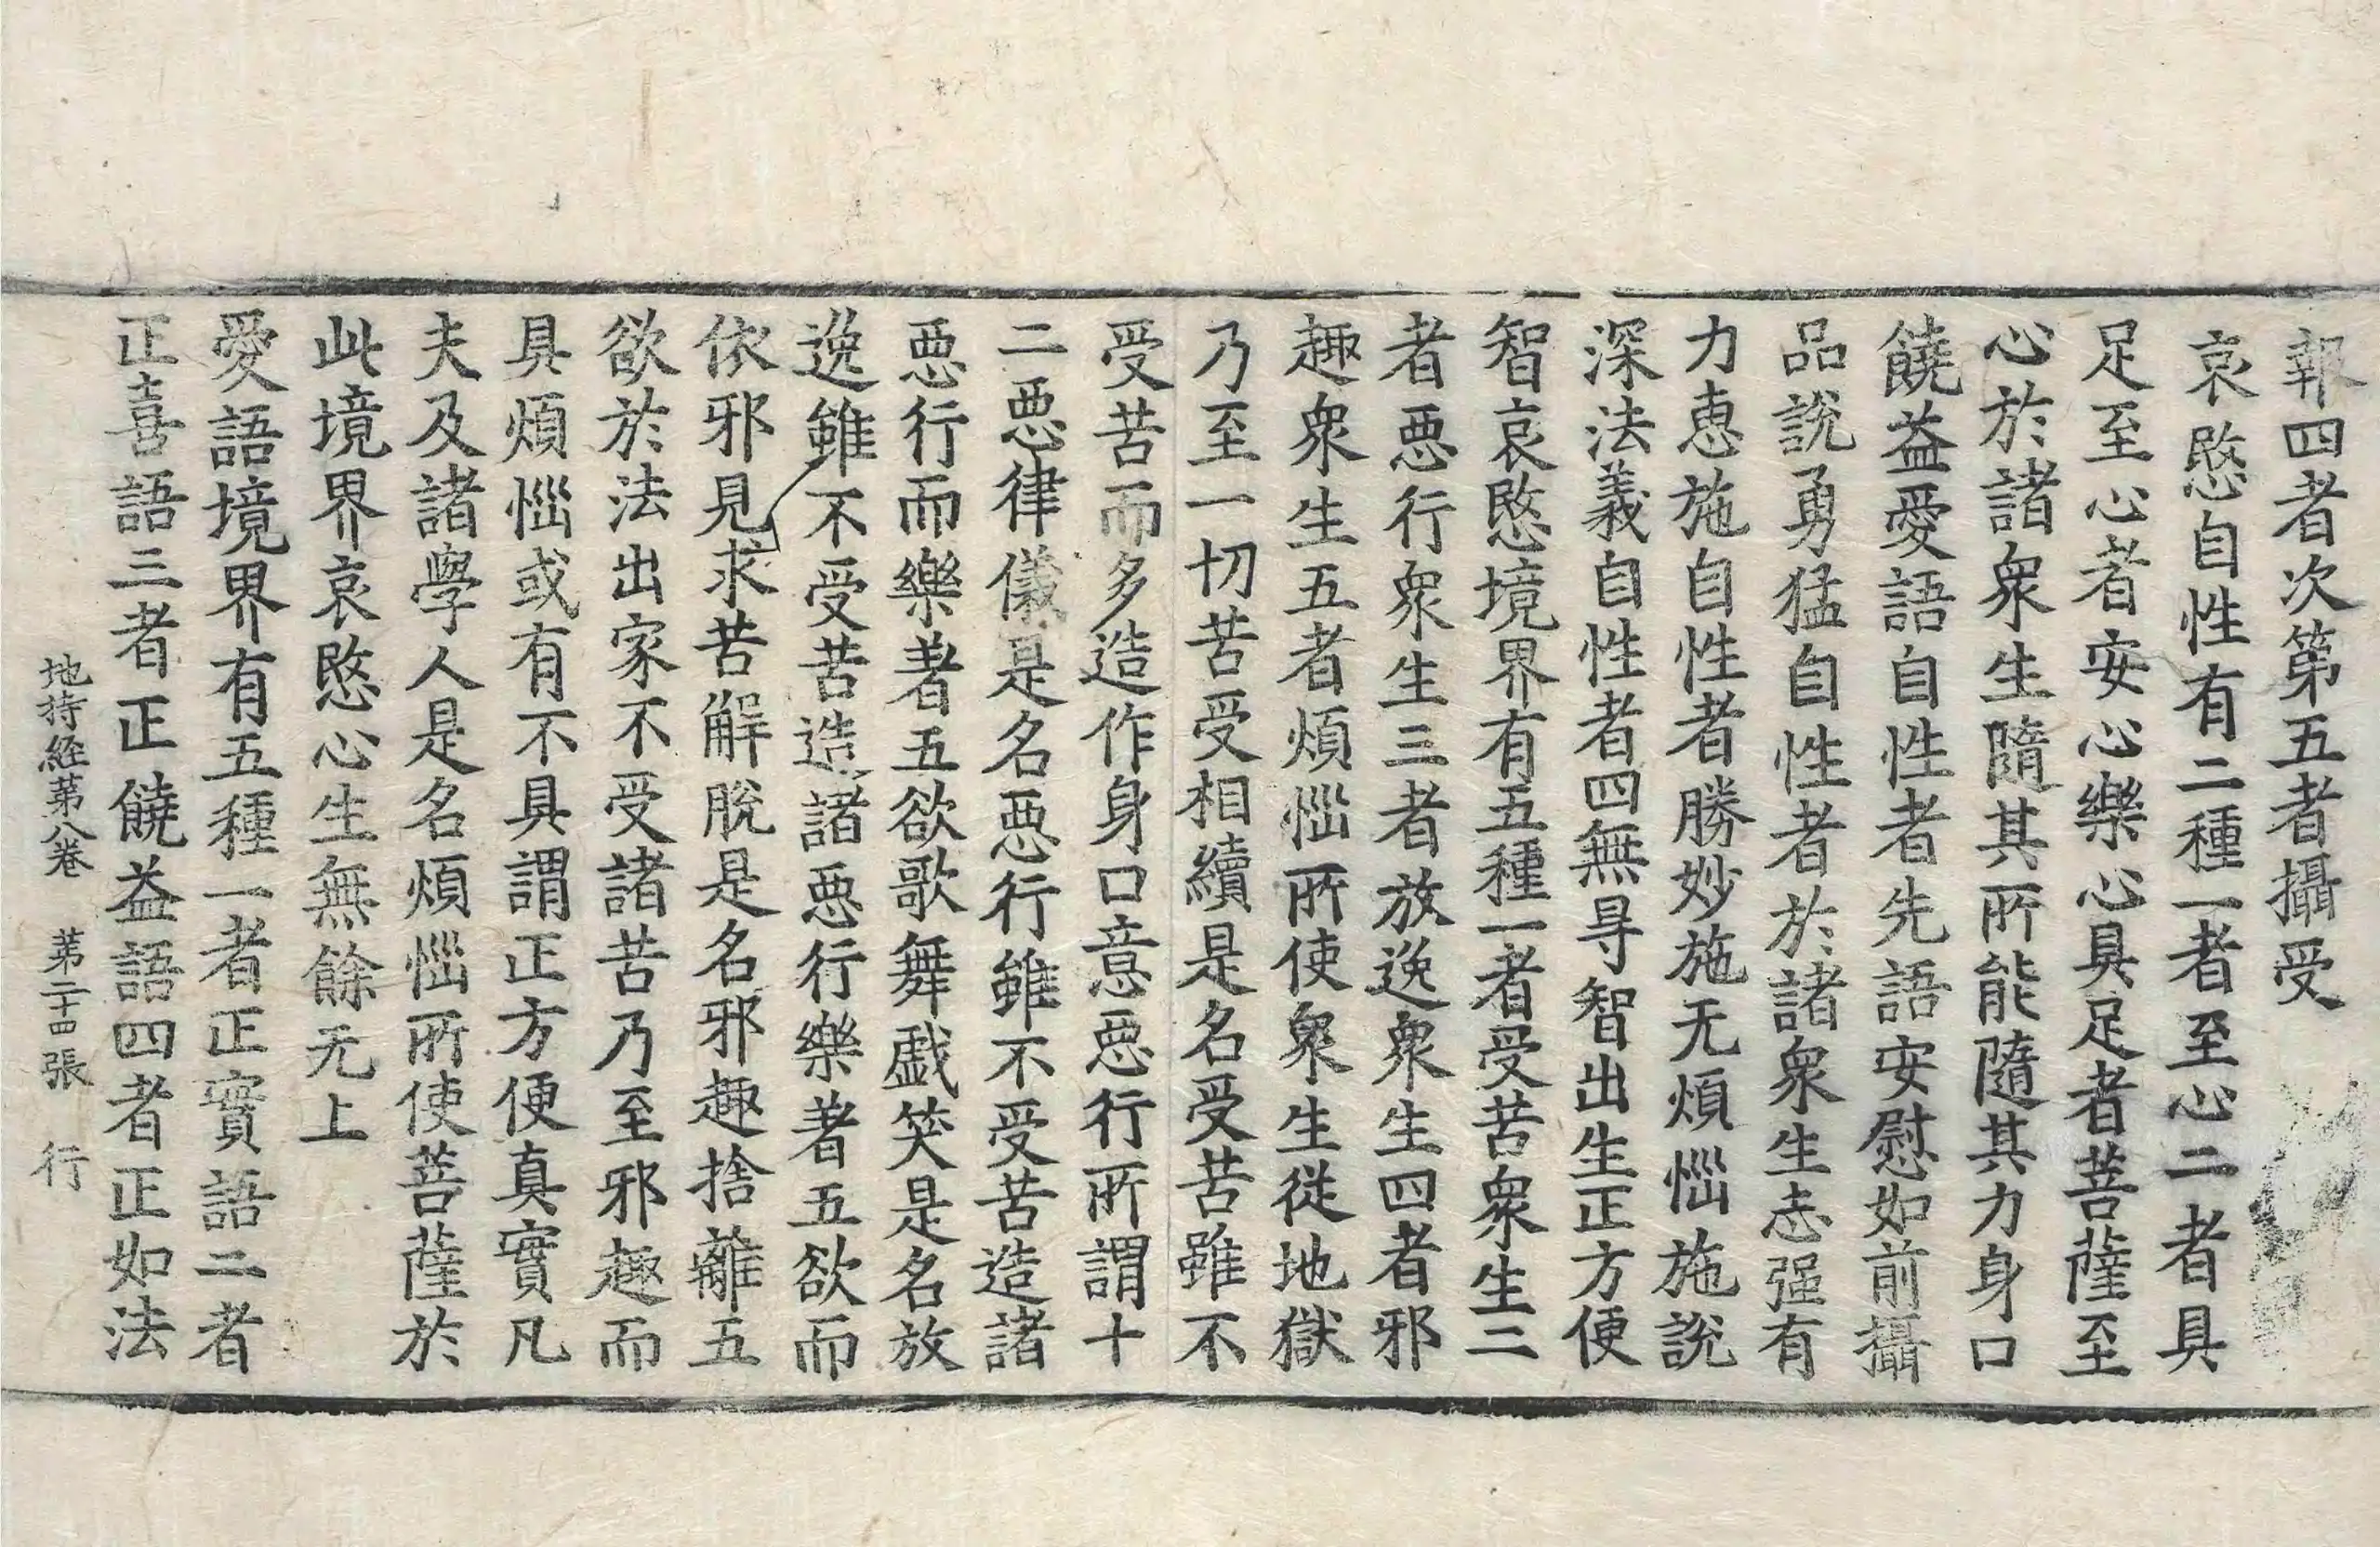 報四者次第五者攝受
哀愍自性有二種一者至心二者具
足至心者安心樂心具足者菩薩至
心於諸衆生隨其所能隨其力身口
饒益愛語自性者先語安慰如前攝
品說勇猛自性者於諸衆生志强有
力惠施自性者勝妙施无煩惱施說
深法義自性者四無㝵智出生正方便
智哀愍境界有五種一者受苦衆生二
者惡行衆生三者放逸衆生四者邪
趣衆生五者煩惱所使衆生從地獄
乃至一切苦受相續是名受苦雖不
受苦而多造作身口意惡行所謂十
二惡律儀是名惡行雖不受苦造諸
惡行而樂著五欲歌舞戲笑是名放
逸雖不受苦造諸惡行樂著五欲而
依邪見求苦解脫是名邪趣捨離五
欲於法出家不受諸苦乃至邪趣而
具煩惱或有不具謂正方便真實凡
夫及諸學人是名煩惱所使菩薩於
此境界哀愍心生無餘无上
愛語境界有五種一者正實語二者
正喜語三者正饒益語四者正如法
地持經第八卷　第二十四張　行